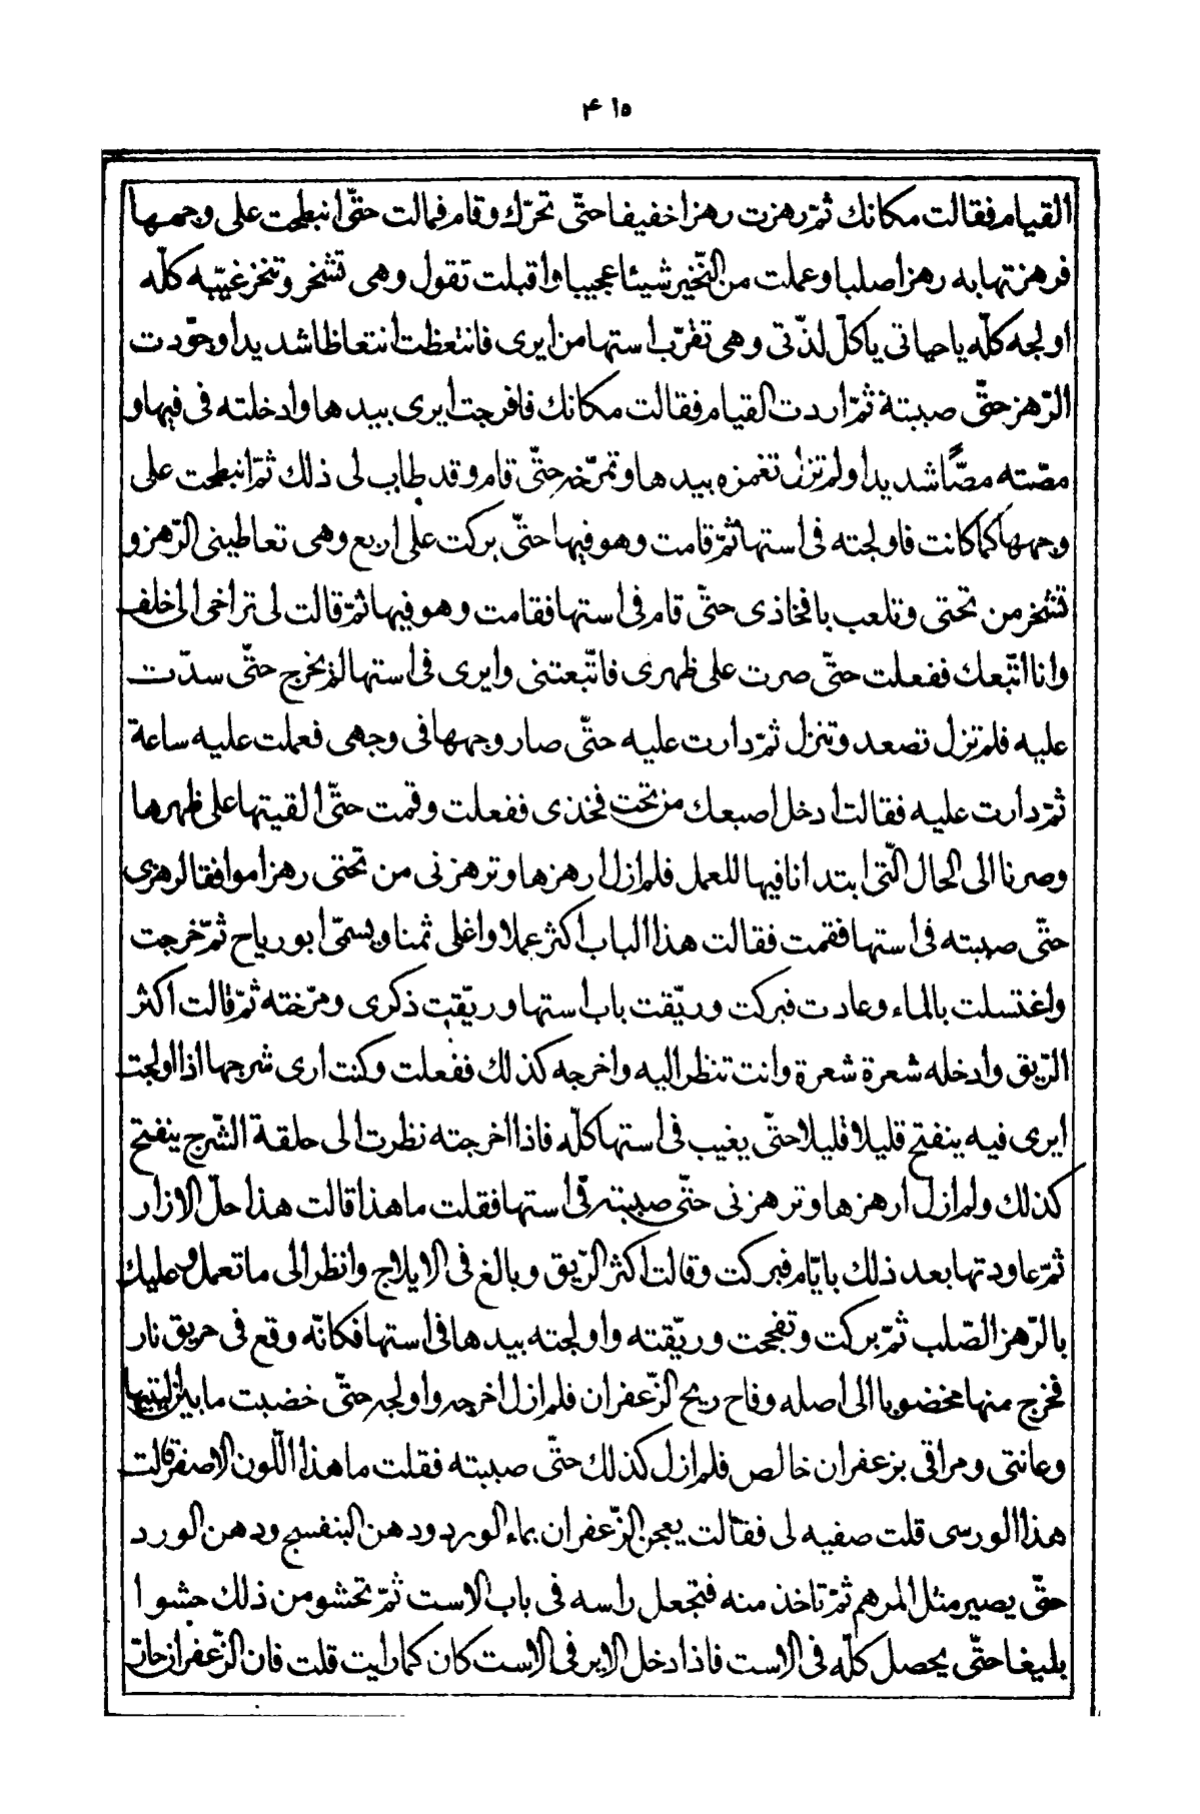 ٤١٥
القيام فقالت مكانك ثمّ رهزت رهزا خفيفا حتّى تحرّك وقام فمالت حتّى انبطحت على وجهها
فرهزتها به رهزا صلبا وعملت من النّخير شيئا عجيبا واقبلت تقول وهى تشخر وتنخر غيّبه كلّه
اولجه كلّه يا حياتى يا كلّ لذّتى وهى تقرّب استها من ايرى فانتعظت انتعاظا شديدا وجوّدت
الرّهز حتّى صببتة ثمّ اردت القيام فقالت مكانك فافرجت ايرى بيدها وادخلته فى فيها و
مصّته مصًّا شديدا ولم تزل تغمزه بيدها وتمرّخه حتّى قام وقد طاب لى ذلك ثمّ انبطحت على
وجهها كما كانت فاولجته فى استها ثمّ قامت وهو فيها حتّى بركت على اربع وهى تعاطينى الرّهز و
تشخر من تحتى وتلعب بافخاذى حتّى قام فى استها فقامت وهو فيها ثمّ قالت لى تراخى الى خلف
وانا اتّبعك ففعلت حتّى صرت على ظهرى فاتّبعتنى وايرى فى استها لم يخرج حتّى سدّت
عليه فلم تزل تصعد وتنزل ثمّ دارت عليه حتّى صار وجهها فى وجهى فعملت عليه ساعة
ثمّ دارت عليه فقالت ادخل اصبعك من تحت فخذى ففعلت وقمت حتّى القيتها على ظهرها
وصرنا الى الحال الّتى ابتدانا فيها للعمل فلم ازل ارهزها وترهزنى من تحتى رهزا موافقا لرهزى
حتّى صببته فى استها فقمت فقالت هذا الباب اكثر عملا واغلى ثمنا ويسمّى ابو رياح ثمّ خرجت
واغتسلت بالماء وعادت فبركت وريّقت باب استها وريّقت ذكرى ومرّخته ثمّ قالت اكثر
الرّيق وادخله شعرة شعرة وانت تنظر اليه واخرجه كذلك ففعلت وكنت ارى شرجها اذا اولجت
ايرى فيه ينفتح قليلا قليلا حتّى يغيب فى استها كلّه فاذا اخرجته نظرت الى حلقة الشّرج ينفتح
كذلك ولم ازل ارهزها وترهزنى حتّى صببته فى استها فقلت ما هذا قالت هذا حلّ الازار
ثمّ عاودتها بعد ذلك بايّام فبركت وقالت اكثر الرّيق وبالغ فى الايلاج وانظر الى ما تعمل وعليك
بالرّهز الصّلب ثمّ بركت وتفجحت وريّقته واولجته بيدها فى استها فكانّه وقع فى حريق نار
فخرج منها مخضوبا الى اصله وفاح ريح الزّعفران فلم ازل اخرجه واولجه حتّى خضبت ما بين اليتيها
وعانتى ومراقى بزعفران خالص فلم ازل كذلك حتّى صببته فقلت ما هذا اللّون الاصفر قالت
هذا الورسى قلت صفيه لى فقالت يعجن الزّعفران بماء الورد ودهن البنفسج ودهن الورد
حتّى يصير مثل المرهم ثمّ تاخذ منه فتجعل راسه فى باب الاست ثمّ تحشو من ذلك حشوا
بليغا حتّى يحصل كلّه فى الاست فاذا دخل الاير فى الاست كان كما رايت قلت فان الزّعفران حارّ